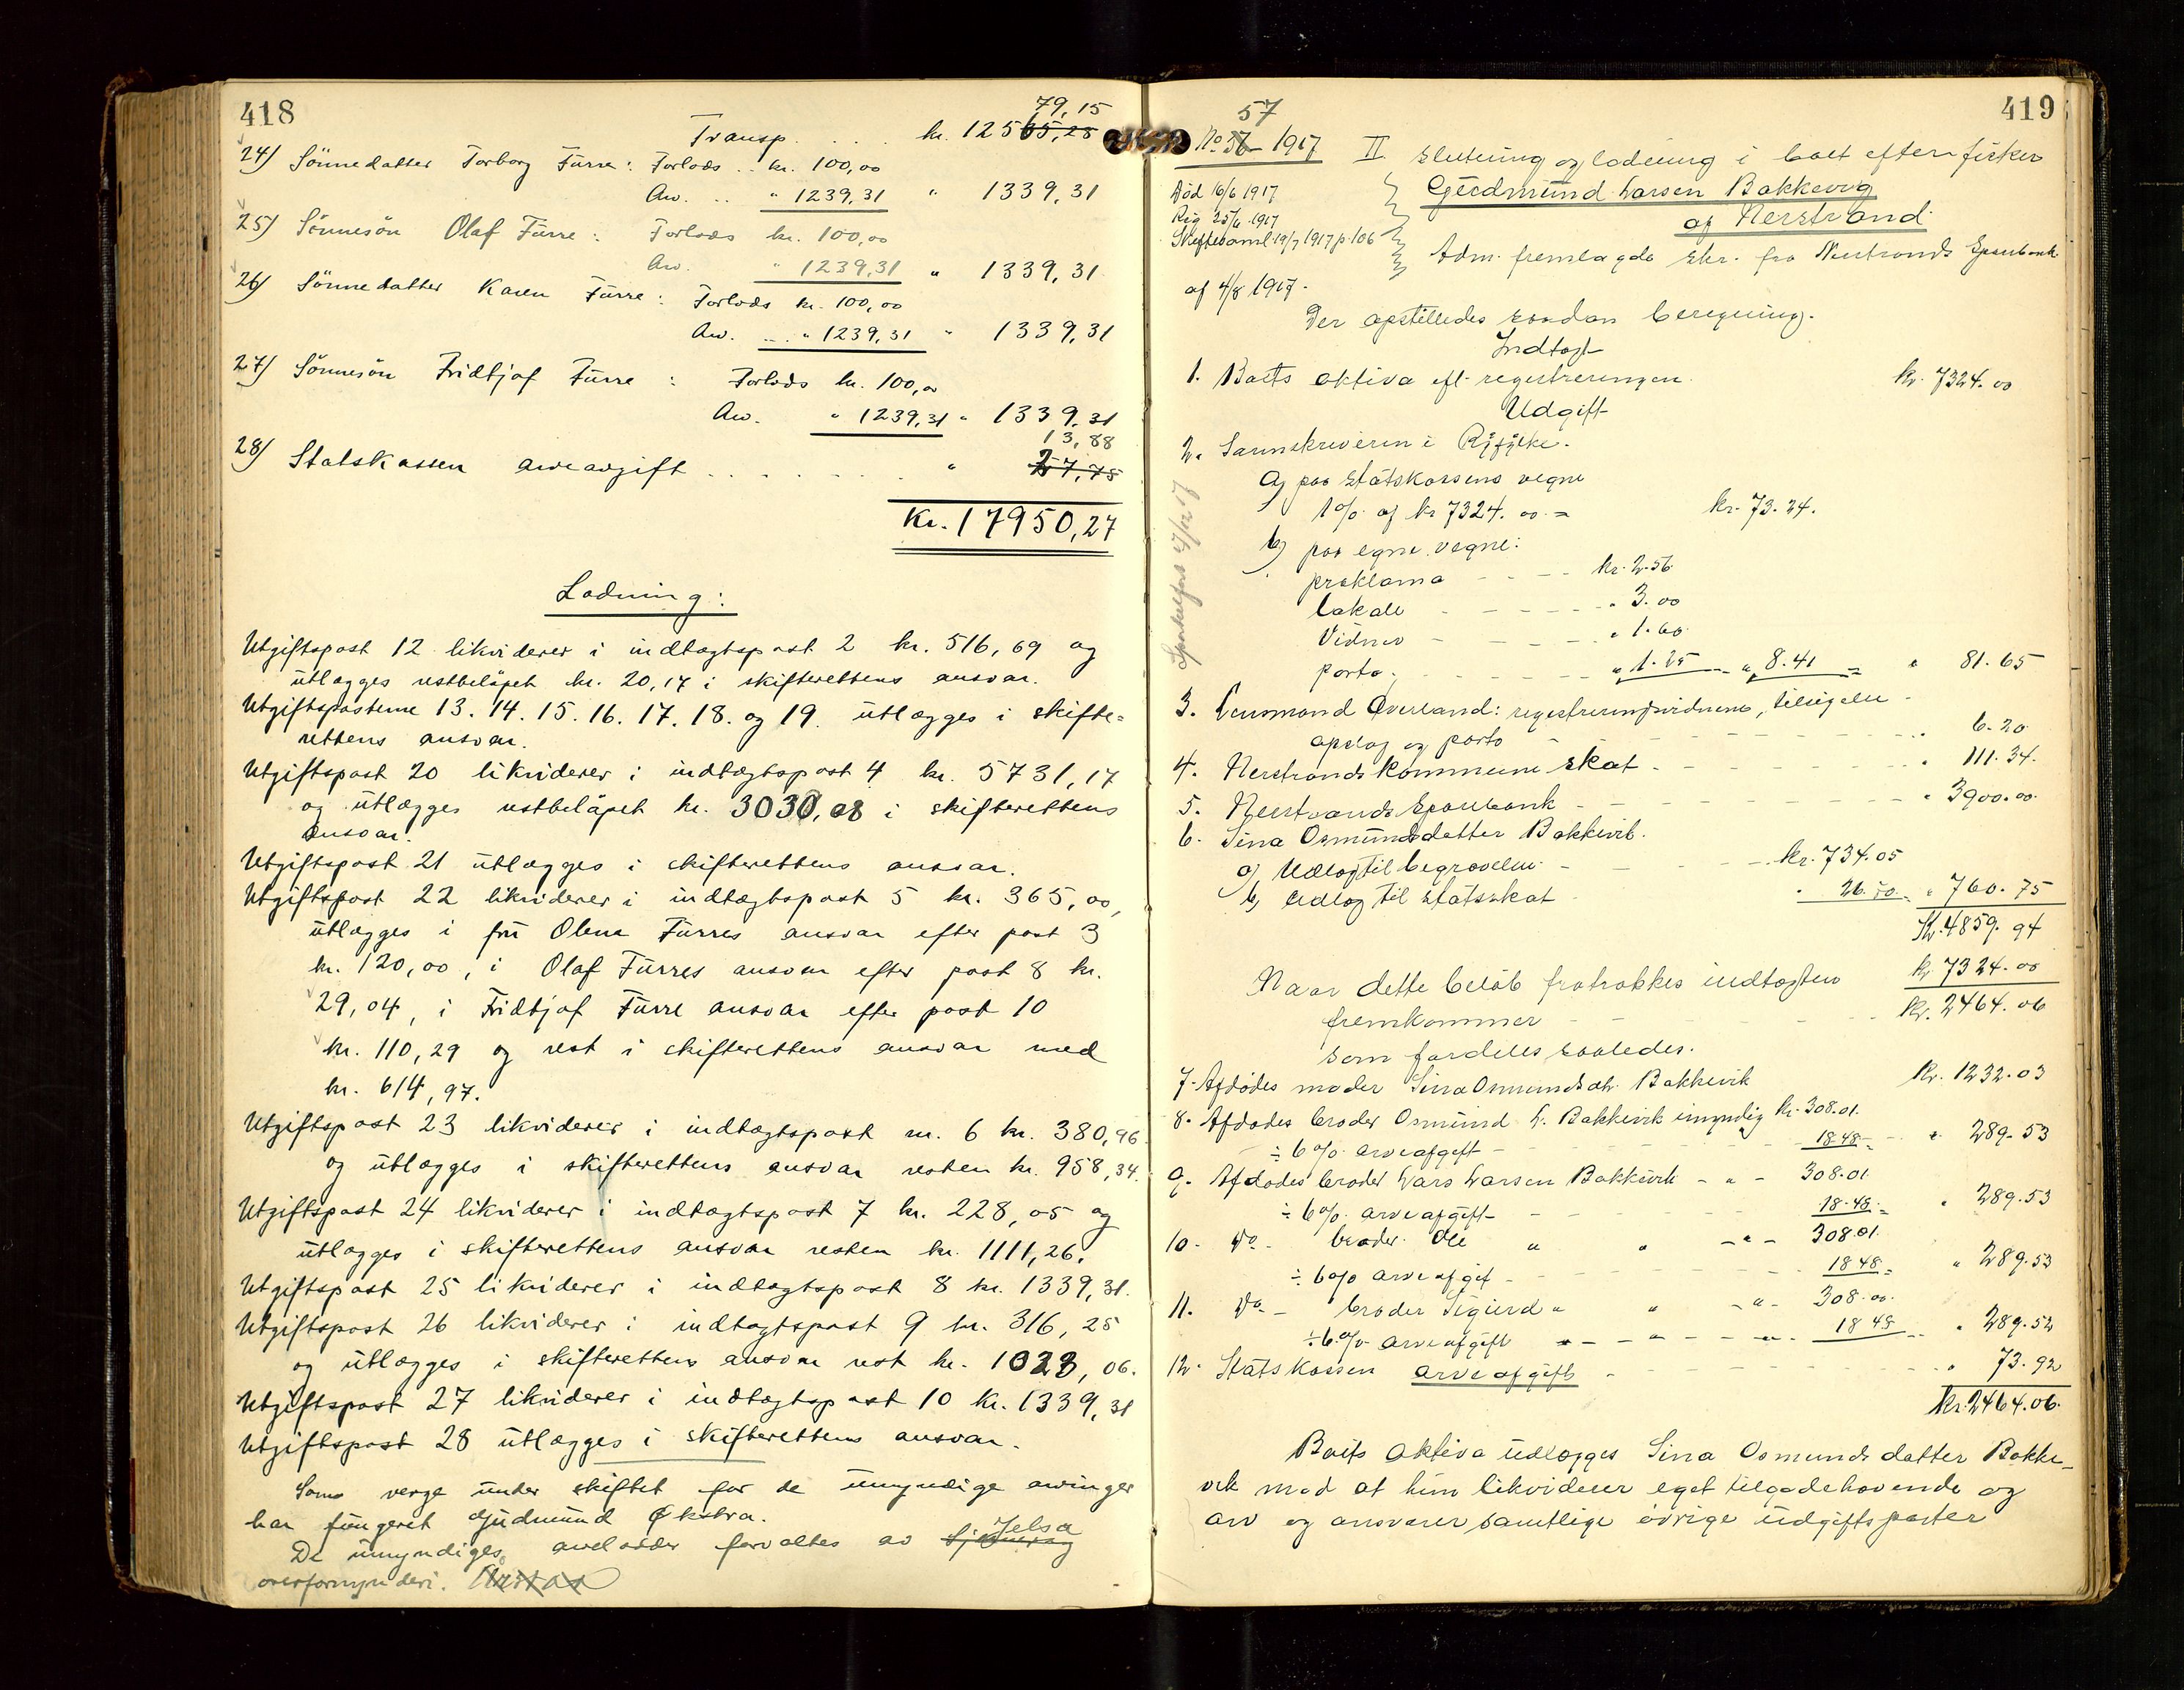 418
79,15
Transp. . . . . kr. 12565,28
24) Sönnedatter Torborg Fürre: Forlods .. kr. 100,00
Arv. .. " 1239,31 " 1339,31
25) Sönnesön Olaf Fürre: Forlods kr. 100,00
Arv. " 1239,31 " 1339,31
26) Sönnedatter Karen Fürre: Forlods kr. 100,00
Arv. ... " 1239,31 " 1339,31
27) Sönnesön Fridtjof Fürre : Forlods kr. 100,00
Arv. " 1239,31 " 1339,31
13,88
28) Statskassen arveavgift . . . . . . . " 27,75
Kr. 17950,27
Lodning:
Utgiftspost 12 likviderer i indtægtspost 2 kr. 516,69 og
utlægges restbelöpet kr. 20,17 i skifterettens ansvar.
Utgiftsposterne 13. 14. 15. 16. 17. 18. og 19. utlægges i skifte=
rettens ansvar.
Utgiftspost 20 likviderer i indtægtspost 4 kr. 5731,17
og utlægges restbelöpet kr. 3030,08 i skifterettens
ansvar.
Utgiftspost 21 utlægges i skifterettens ansvar.
Utgiftspost 22 likviderer i indtægtspost 5 kr. 365,00,
utlægges i fru Olene Fürres ansvar efter post 3
kr. 120,00, i Olaf Fürres ansvar efter post 8 kr.
29,04, i Fridtjof Fürre ansvar efter post 10
kr. 110,29 og rest i skifterettens ansvar med
kr. 614,97.
Utgiftspost 23 likviderer i indtægtspost nr. 6 kr. 380,96
og utlægges i skifterettens ansvar resten kr. 958,34.
Utgiftspost 24 likviderer i indtægtspost 7 kr. 228,05 og
utlægges i skifterettens ansvar resten kr. 1111,26.
Utgiftspost 25 likviderer i indtægtspost 8 kr. 1339,31.
Utgiftspost 26 likviderer i indtægtspost 9 kr. 316,25
og utlægges i skifterettens ansvar rest kr. 1023,06.
Utgiftspost 27 likviderer i indtægtspost 10 kr. 1339,31
Utgiftspost 28 utlægges i skifterettens ansvar.
Som verge under skiftet for de umyndige arvinger
har fungeret Gudmund Økstra.
De umyndiges arvelodder forvaltes av Jelsa
overformynderi.
419
57
No 57 - 1917 II Slutning og lodning i boet efter fisker
Gudmund Larsen Bakkevig
af Nerstrand
Död 16/6 1917
Rig 25/6 1917
Skiftesaml 19/7 1917 p. 106
Adm. fremlagde skr. fra Nerstrands Sparebank
af 4/8 1917.
Der opstilledes saadan beregning.
Indtægt
1. Boets aktiva efl. registreringen. kr. 7324.00
Udgift
2. Sorenskriveren i Ryfylke.
a) paa statskassens vegne
1% af kr 7324.00 = kr. 73.24.
b) paa egne vegne:
proklama - - - - kr. 2.56
lokale - - - - - " 3.00
Vidner - - - - " 1.60
porto. - - - - - " 1.25 - " 8.41 = " 81.65
3. Lensmand Overland: registreringsvidnene, tilsigelse
opslag og porto - - - - - - - " 6.20
4. Nerstrands kommune skat - - - - - " 111.34.
5. Nerstrands Sparebank - - - - - - " 3900.00
6. Sina Osmundsdatter Bakkevik.
a) Udlæg til begravelsen - - - - kr. 734.05
b) Udlæg til statsskat " 26.70 " 760.75
Kr. 4859.94
Naar dette belöb fratrækkes indtægten kr. 7324.00
fremkommer - - - - - kr. 2464.06
som fordeles saaledes.
7. Afdödes moder Sina Osmundsdtr. Bakkevik kr. 1232.03
8. Afdödes broder Osmund L. Bakkevik umyndig kr. 308.01.
÷ 6% arveafgift - - - - 18.48 = " 289.53
9. Afdödes broder Lars Larsen Bakkevik - " - 308.01
÷ 6% arveafgift - - - - - 18.48 = " 289.53
10. Do - broder Ole " " - " - 308.01.
÷ 6% arveafgif - - - - - 18 48 = " 289.53
11. Do - broder Sigurd " " - " - 308.00.
÷ 6% arveafgift " - - " - - " - 18 48 " 289.52
12. Statskassen arveafgift - - - - - " 73.92
Kr. 2464.06.
Boets aktiva udlægges Sina Osmundsdatter Bakke-
vik mod at hun likviderer eget tilgodehavende og
arv og ansvarer samtlige övrige udgiftsposter